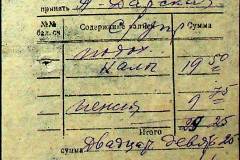 принять
№№ бал. сч Содержание записи Сумма
подох.
налог 19 50
пенси 9 75
Итого 29 25
сумма Двадцат девять 25